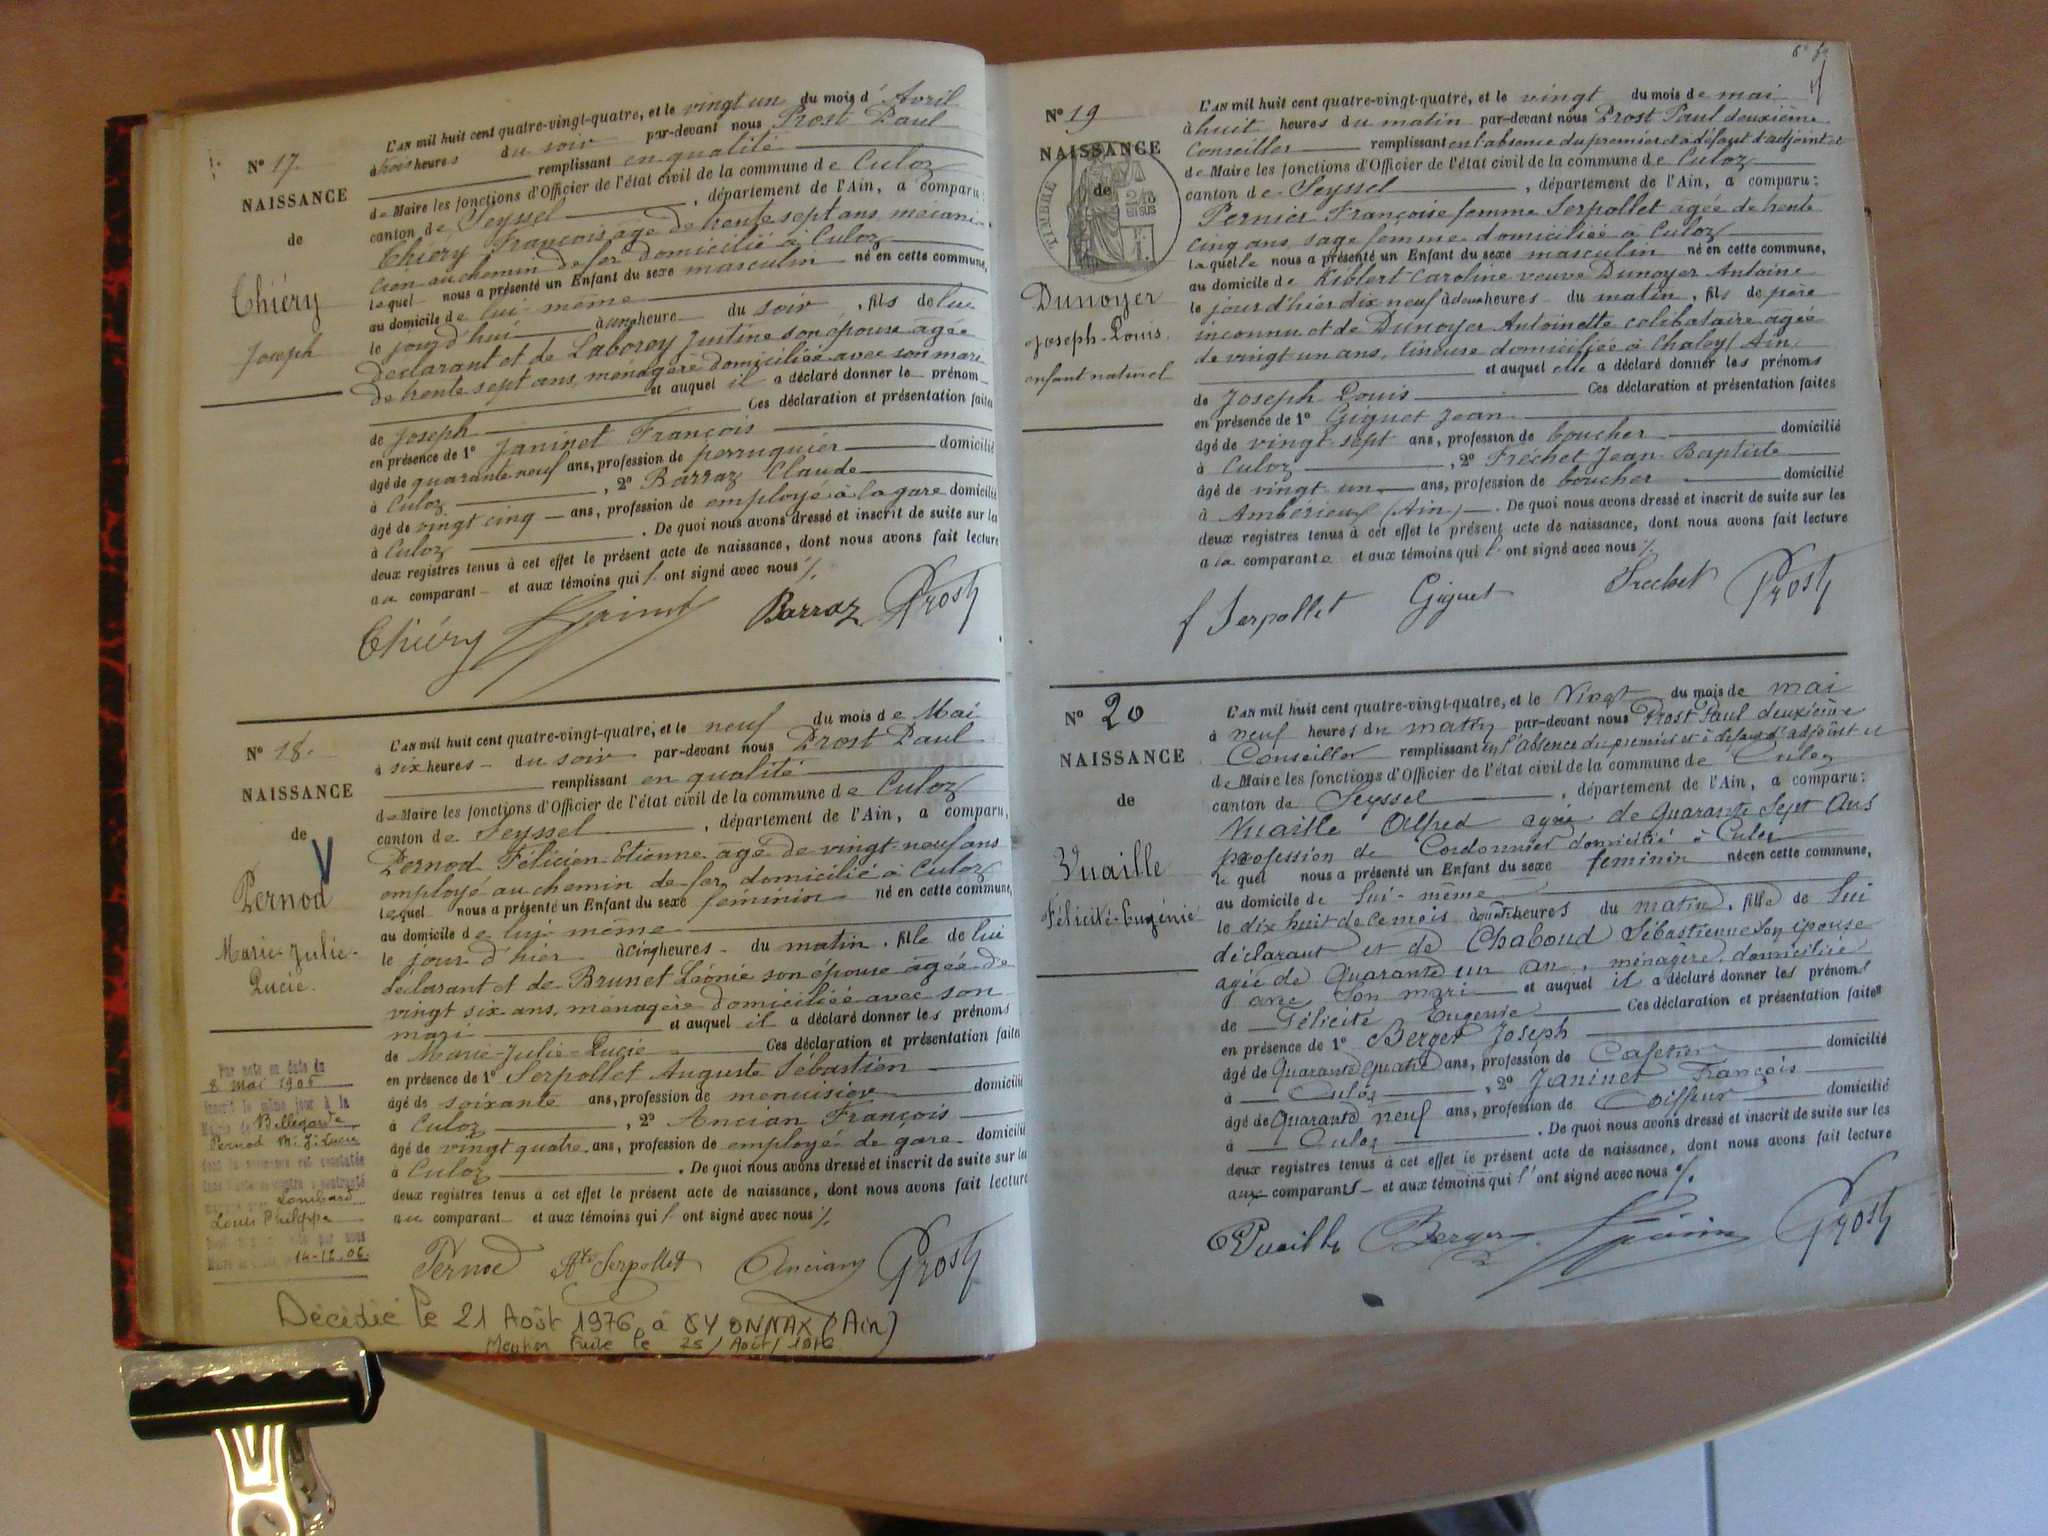 N° 17.
NAISSANCE
de
Thiéry
Joseph
L'AN mil huit cent quatre-vingt-quatre, et le vingt un du mois d'Avril
à trois heures du soir par-devant nous Prost Paul
remplissant en qualité
de Maire les fonctions d'Officier de l'état civil de la commune de Culoz
canton de Seyssel, département de l'Ain, a comparu:
Thiéry François âgé de trente sept ans, mécani-
cien au chemin de fer domicilié à Culoz
lequel nous a présenté un Enfant du sexe masculin né en cette commune,
au domicile de lui-même
le jourd'hui à une heure du soir, fils de lui
déclarant et de Laborey Justine son épouse âgée
de trente sept ans, ménagère domiciliée avec son mari
et auquel il a déclaré donner le prénom
de Joseph Ces déclaration et présentation faites
en présence de 1° Janinet François
âgé de quarante neuf ans, profession de perruquier domicilié
à Culoz, 2° Barraz Claude
âgé de vingt cinq ans, profession de employé à la gare domicilié
à Culoz. De quoi nous avons dressé et inscrit de suite sur les
deux registres tenus à cet effet le présent acte de naissance, dont nous avons fait lecture
au comparant et aux témoins qui l'ont signé avec nous ./.
Thiéry Barraz Prost
N° 18.
NAISSANCE
de
V
Pernod
Marie-Julie-
Lucie.
Par acte en date du
8 Mai 1906
inscrit le même jour à la
Mairie de Bellegarde
Pernod M. J. Lucie
dont la naissance est constatée
dans l'acte ci-contre a contracté
mariage avec Lombard
Louis Philippe
14-12.06.
L'AN mil huit cent quatre-vingt-quatre, et le neuf du mois de Mai
à six heures du soir par-devant nous Prost Paul
remplissant en qualité
de Maire les fonctions d'Officier de l'état civil de la commune de Culoz
canton de Seyssel, département de l'Ain, a comparu,
Pernod Félicien-Etienne âgé de vingt-neuf ans
employé au chemin de fer, domicilié à Culoz
lequel nous a présenté un Enfant du sexe féminin né en cette commune,
au domicile de lui-même
le jour d'hier à cinq heures du matin, fille de lui
déclarant et de Brunet Léonie son épouse âgée de
vingt six ans, ménagère domiciliée avec son
mari et auquel il a déclaré donner les prénoms
de Marie-Julie-Lucie Ces déclaration et présentation faites
en présence de 1° Serpollet Auguste Sébastien
âgé de soixante ans, profession de menuisier domicilié
à Culoz, 2° Ancian François
âgé de vingt quatre ans, profession de employé de gare domicilié
à Culoz. De quoi nous avons dressé et inscrit de suite sur les
deux registres tenus à cet effet le présent acte de naissance, dont nous avons fait lecture
au comparant et aux témoins qui l'ont signé avec nous ./.
Pernod Ate Serpollet Ancian Prost
Décédée le 21 Août 1976 à OYONNAX (Ain)
Mention faite le 25 / Août / 1976
N° 19
NAISSANCE
de
TIMBRE
Dunoyer
Joseph-Louis.
enfant naturel
L'AN mil huit cent quatre-vingt-quatre, et le vingt du mois de mai
à huit heures du matin par-devant nous Prost Paul deuxième
Conseiller remplissant en l'absence du premier et à défaut d'adjoint et
de Maire les fonctions d'Officier de l'état civil de la commune de Culoz
canton de Seyssel, département de l'Ain, a comparu:
Pernier Françoise femme Serpollet âgée de trente
cinq ans, sage femme domiciliée à Culoz
laquelle nous a présenté un Enfant du sexe masculin né en cette commune,
au domicile de Kibbert Caroline veuve Dunoyer Antoine
le jour d'hier dix neuf à deux heures du matin, fils de père
inconnu et de Dunoyer Antoinette célibataire âgée
de vingt un ans, tineuse domiciliée à Chaley (Ain)
et auquel elle a déclaré donner les prénoms
de Joseph Louis Ces déclaration et présentation faites
en présence de 1° Giguet Jean
âgé de vingt-sept ans, profession de boucher domicilié
à Culoz, 2° Fréchet Jean-Baptiste
âgé de vingt un ans, profession de boucher domicilié
à Ambérieux (Ain). De quoi nous avons dressé et inscrit de suite sur les
deux registres tenus à cet effet le présent acte de naissance, dont nous avons fait lecture
a la comparante et aux témoins qui l'ont signé avec nous ./.
f Serpollet Giguet Frechet Prost
N° 20
NAISSANCE
de
Vuaille
Félicité-Eugénie
L'AN mil huit cent quatre-vingt-quatre, et le Vingt du mois de mai
à neuf heures du matin par-devant nous Prost Paul deuxième
Conseiller remplissant en l'absence du premier et à défaut d'adjoint et
de Maire les fonctions d'Officier de l'état civil de la commune de Culoz
canton de Seyssel, département de l'Ain, a comparu:
Vuaille Alfred agée de Quarante Sept Ans
profession de Cordonnier domicilié à Culoz
lequel nous a présenté un Enfant du sexe feminin née en cette commune,
au domicile de Lui-même
le dix huit de ce mois à quatre heures du matin, fille de Lui
déclarant et de Chaboud Sébastienne Son épouse
agée de Quarante un an, ménagère, domiciliée
avec Son mari et auquel il a déclaré donner les prénoms
de Félicité Eugenie Ces déclaration et présentation faites
en présence de 1° Berger Joseph
âgé de Quarante Quatre ans, profession de Cafetier domicilié
à Culoz, 2° Janinet François
âgé de Quarante neuf ans, profession de Coiffeur domicilié
à Culoz. De quoi nous avons dressé et inscrit de suite sur les
deux registres tenus à cet effet le présent acte de naissance, dont nous avons fait lecture
aux comparants et aux témoins qui l'ont signé avec nous ./.
Vuaille Berger Prost